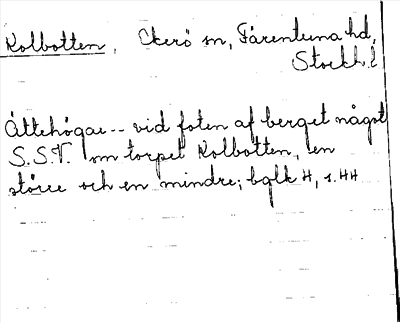 Kolbotten, Ekerö sn, Färentuna hd,
Stockh. l
Ättehögar -- vid foten af berget något
S.S.V. om torpet Kolbotten, en
större och en mindre; bglk H, s. 44